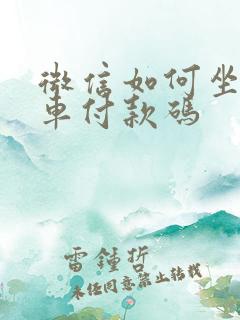 微信如何坐
車付款碼
雷鍾哲
未经同意禁止转载